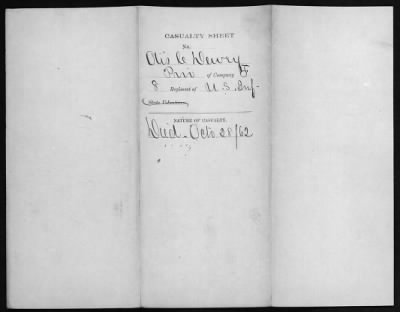 CASUALTY SHEET
No.
Otis C Dewey
Priv of Company F
8 Regiment of U.S. Inf-
State Volunteers,
NATURE OF CASUALTY.
Died - Octo 28/62